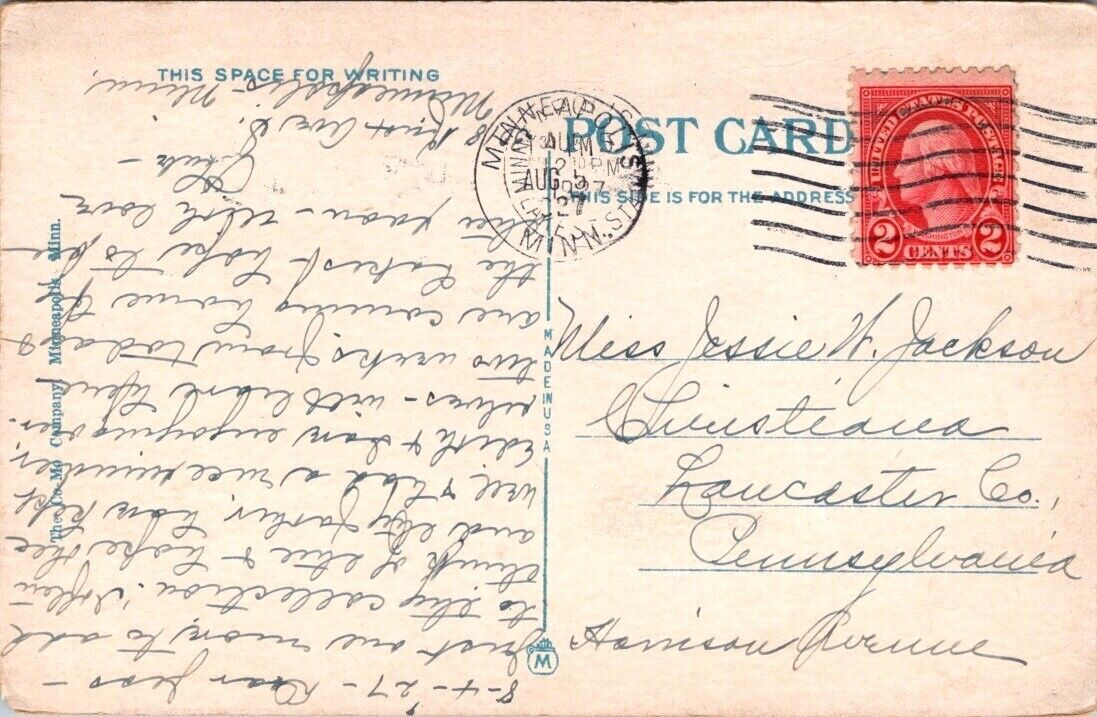 THIS SPACE FOR WRITING
POST CARD
THIS SIDE IS FOR THE ADDRESS
MINNEAPOLIS
MINN.
AUG 5
UNITED STATES POSTAGE
WASHINGTON
2 CENTS 2
The Co-Mo Company, Minneapolis, Minn.
MADE IN USA
M
8-4-'27- Dear Jess-
Just one more, to add
to thy collection. I often
think of thee & hope thee
and thy father have kept
well & had a nice summer.
Edith & I are enjoying our-
selves - will leave
two weeks from today &
are coming home by
the Lakes. Hope to see
thee soon - with love

18 First Ave S.
Minneapolis - Minn.
Miss Jessie W. Jackson
Christiana
Lancaster Co.,
Pennsylvania
Harrison Avenue